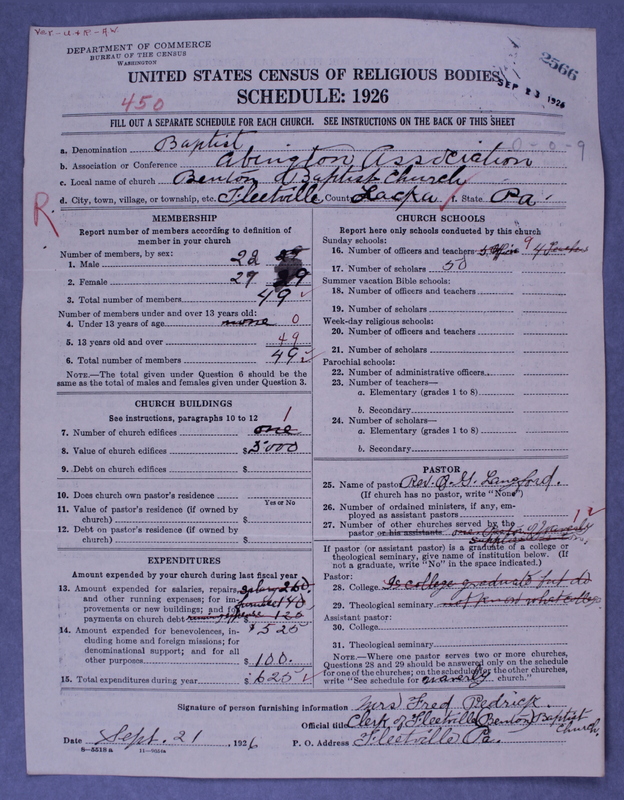 Ver - U + P - A.W.
DEPARTMENT OF COMMERCE
BUREAU OF THE CENSUS
WASHINGTON
2566
UNITED STATES CENSUS OF RELIGIOUS BODIES
SEP 23 1926
450
SCHEDULE: 1926
FILL OUT A SEPARATE SCHEDULE FOR EACH CHURCH. SEE INSTRUCTIONS ON THE BACK OF THIS SHEET
a. Denomination Baptist 0-0-9
b. Association or Conference Abington Association
c. Local name of church Benton Baptist Church
R. d. City, town, village, or township, etc. Fleetville County Lacka f. State Pa
MEMBERSHIP
Report number of members according to definition of
member in your church
Number of members, by sex:
1. Male 22
2. Female 27 29
3. Total number of members 49 ✓
Number of members under and over 13 years old:
4. Under 13 years of age none 0
5. 13 years old and over 49
6. Total number of members 49 ✓
NOTE.—The total given under Question 6 should be the
same as the total of males and females given under Question 3.
CHURCH BUILDINGS
See instructions, paragraphs 10 to 12 1
7. Number of church edifices one
8. Value of church edifices $ 5000
9. Debt on church edifices $
10. Does church own pastor's residence
Yes or No
11. Value of pastor's residence (if owned by
church) $
12. Debt on pastor's residence (if owned by
church) $
EXPENDITURES
Amount expended by your church during last fiscal year
13. Amount expended for salaries, repairs, Salary 260.
and other running expenses; for im- 140
provements or new buildings; and for
payments on church debt 125
$ 525
14. Amount expended for benevolences, in-
cluding home and foreign missions; for
denominational support; and for all
other purposes $ 100.
15. Total expenditures during year $ 625 ✓
CHURCH SCHOOLS
Report here only schools conducted by this church
Sunday schools:
16. Number of officers and teachers 9
17. Number of scholars 50
Summer vacation Bible schools:
18. Number of officers and teachers
19. Number of scholars
Week-day religious schools:
20. Number of officers and teachers
21. Number of scholars
Parochial schools:
22. Number of administrative officers
23. Number of teachers—
a. Elementary (grades 1 to 8)
b. Secondary
24. Number of scholars—
a. Elementary (grades 1 to 8)
b. Secondary
PASTOR
25. Name of pastor Rev. B. G. Langford.
(If church has no pastor, write "None")
26. Number of ordained ministers, if any, em-
ployed as assistant pastors
27. Number of other churches served by the 1
pastor or his assistants one Pastor of Waverly
If pastor (or assistant pastor) is a graduate of a college or
theological seminary, give name of institution below. (If
not a graduate, write "No" in the space indicated.)
Pastor:
28. College Is college graduate but do
29. Theological seminary not know what college
Assistant pastor:
30. College
31. Theological seminary
NOTE.—Where one pastor serves two or more churches,
Questions 28 and 29 should be answered only on the schedule
for one of the churches; on the schedule for the other churches,
write "See schedule for Waverly church."
Signature of person furnishing information Mrs. Fred Pedrick.
Official title Clerk of Fleetville (Benton) Baptist Church.
Date Sept. 21, 1926 P. O. Address Fleetville Pa.
8—5518 a